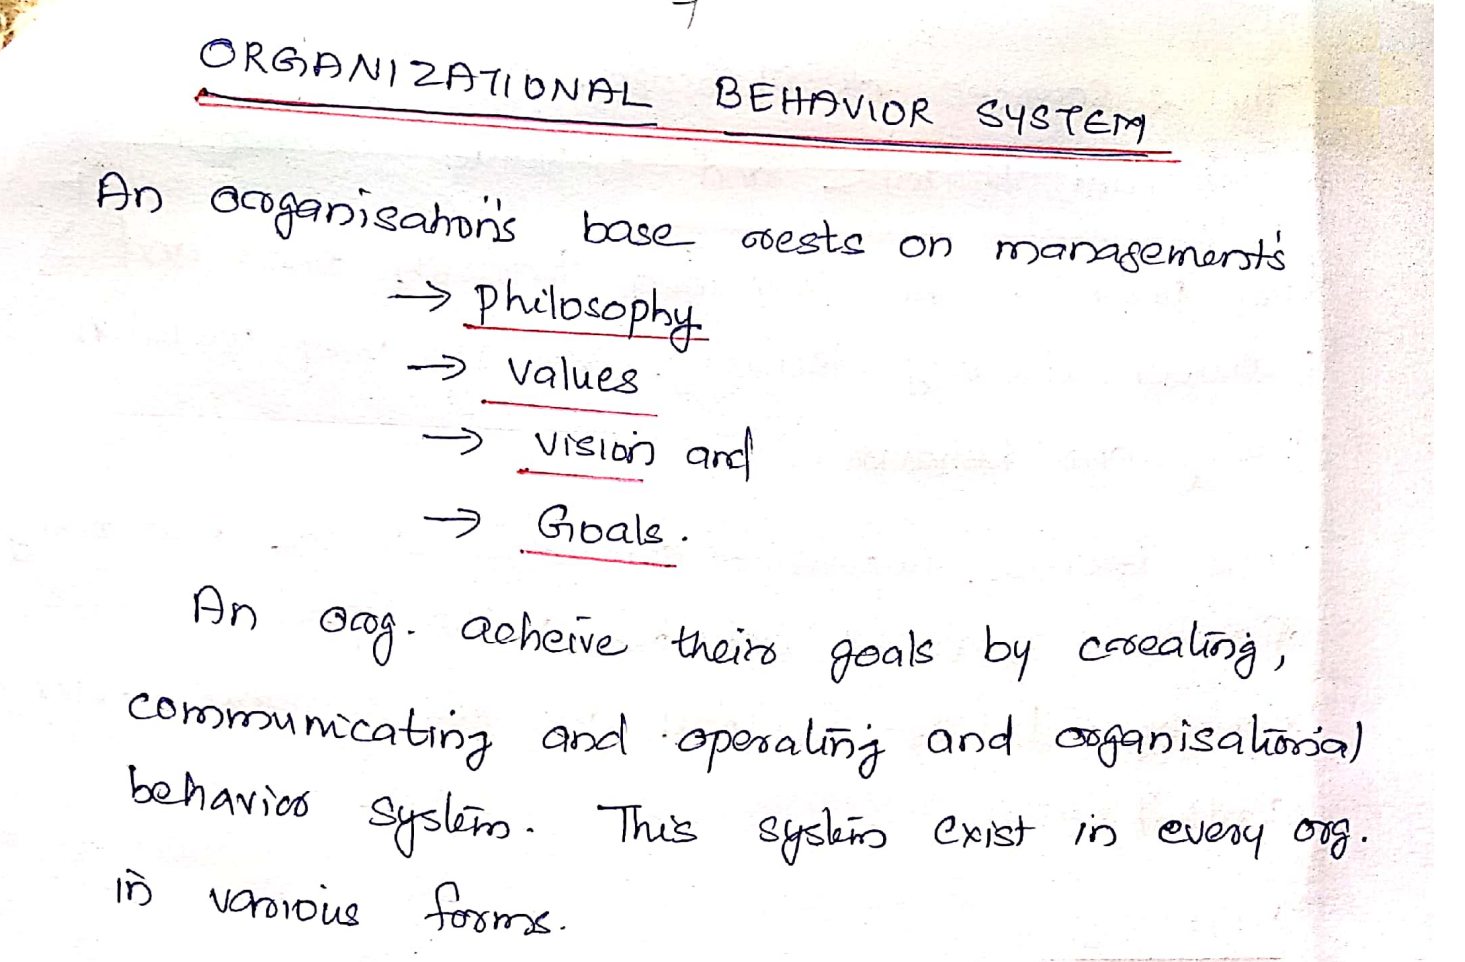 ORGANIZATIONAL BEHAVIOR SYSTEM
An organisation's base rests on management's
→ Philosophy
→ Values
→ Vision and
→ Goals.
An org. acheive their goals by creating,
communicating and operating and organisational
behavior system. This system exist in every org.
in various forms.